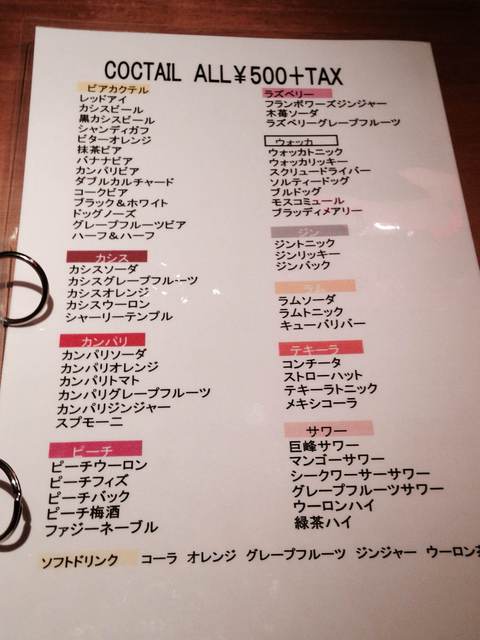 COCTAIL ALL¥500+TAX
ビアカクテル
レッドアイ
カシスビール
黒カシスビール
シャンディガフ
ビターオレンジ
抹茶ビア
バナナビア
カンパリビア
ダブルカルチャード
コークビア
ブラック＆ホワイト
ドッグノーズ
グレープフルーツビア
ハーフ＆ハーフ
カシス
カシスソーダ
カシスグレープフルーツ
カシスオレンジ
カシスウーロン
シャーリーテンプル
カンパリ
カンパリソーダ
カンパリオレンジ
カンパリトマト
カンパリグレープフルーツ
カンパリジンジャー
スプモーニ
ピーチ
ピーチウーロン
ピーチフィズ
ピーチバック
ピーチ梅酒
ファジーネーブル
ラズベリー
フランボワーズジンジャー
木苺ソーダ
ラズベリーグレープフルーツ
ウォッカ
ウォッカトニック
ウォッカリッキー
スクリュードライバー
ソルティードッグ
ブルドッグ
モスコミュール
ブラッディメアリー
ジン
ジントニック
ジンリッキー
ジンバック
ラム
ラムソーダ
ラムトニック
キューバリバー
テキーラ
コンチータ
ストローハット
テキーラトニック
メキシコーラ
サワー
巨峰サワー
マンゴーサワー
シークワーサーサワー
グレープフルーツサワー
ウーロンハイ
緑茶ハイ
ソフトドリンク コーラ オレンジ グレープフルーツ ジンジャー ウーロン茶